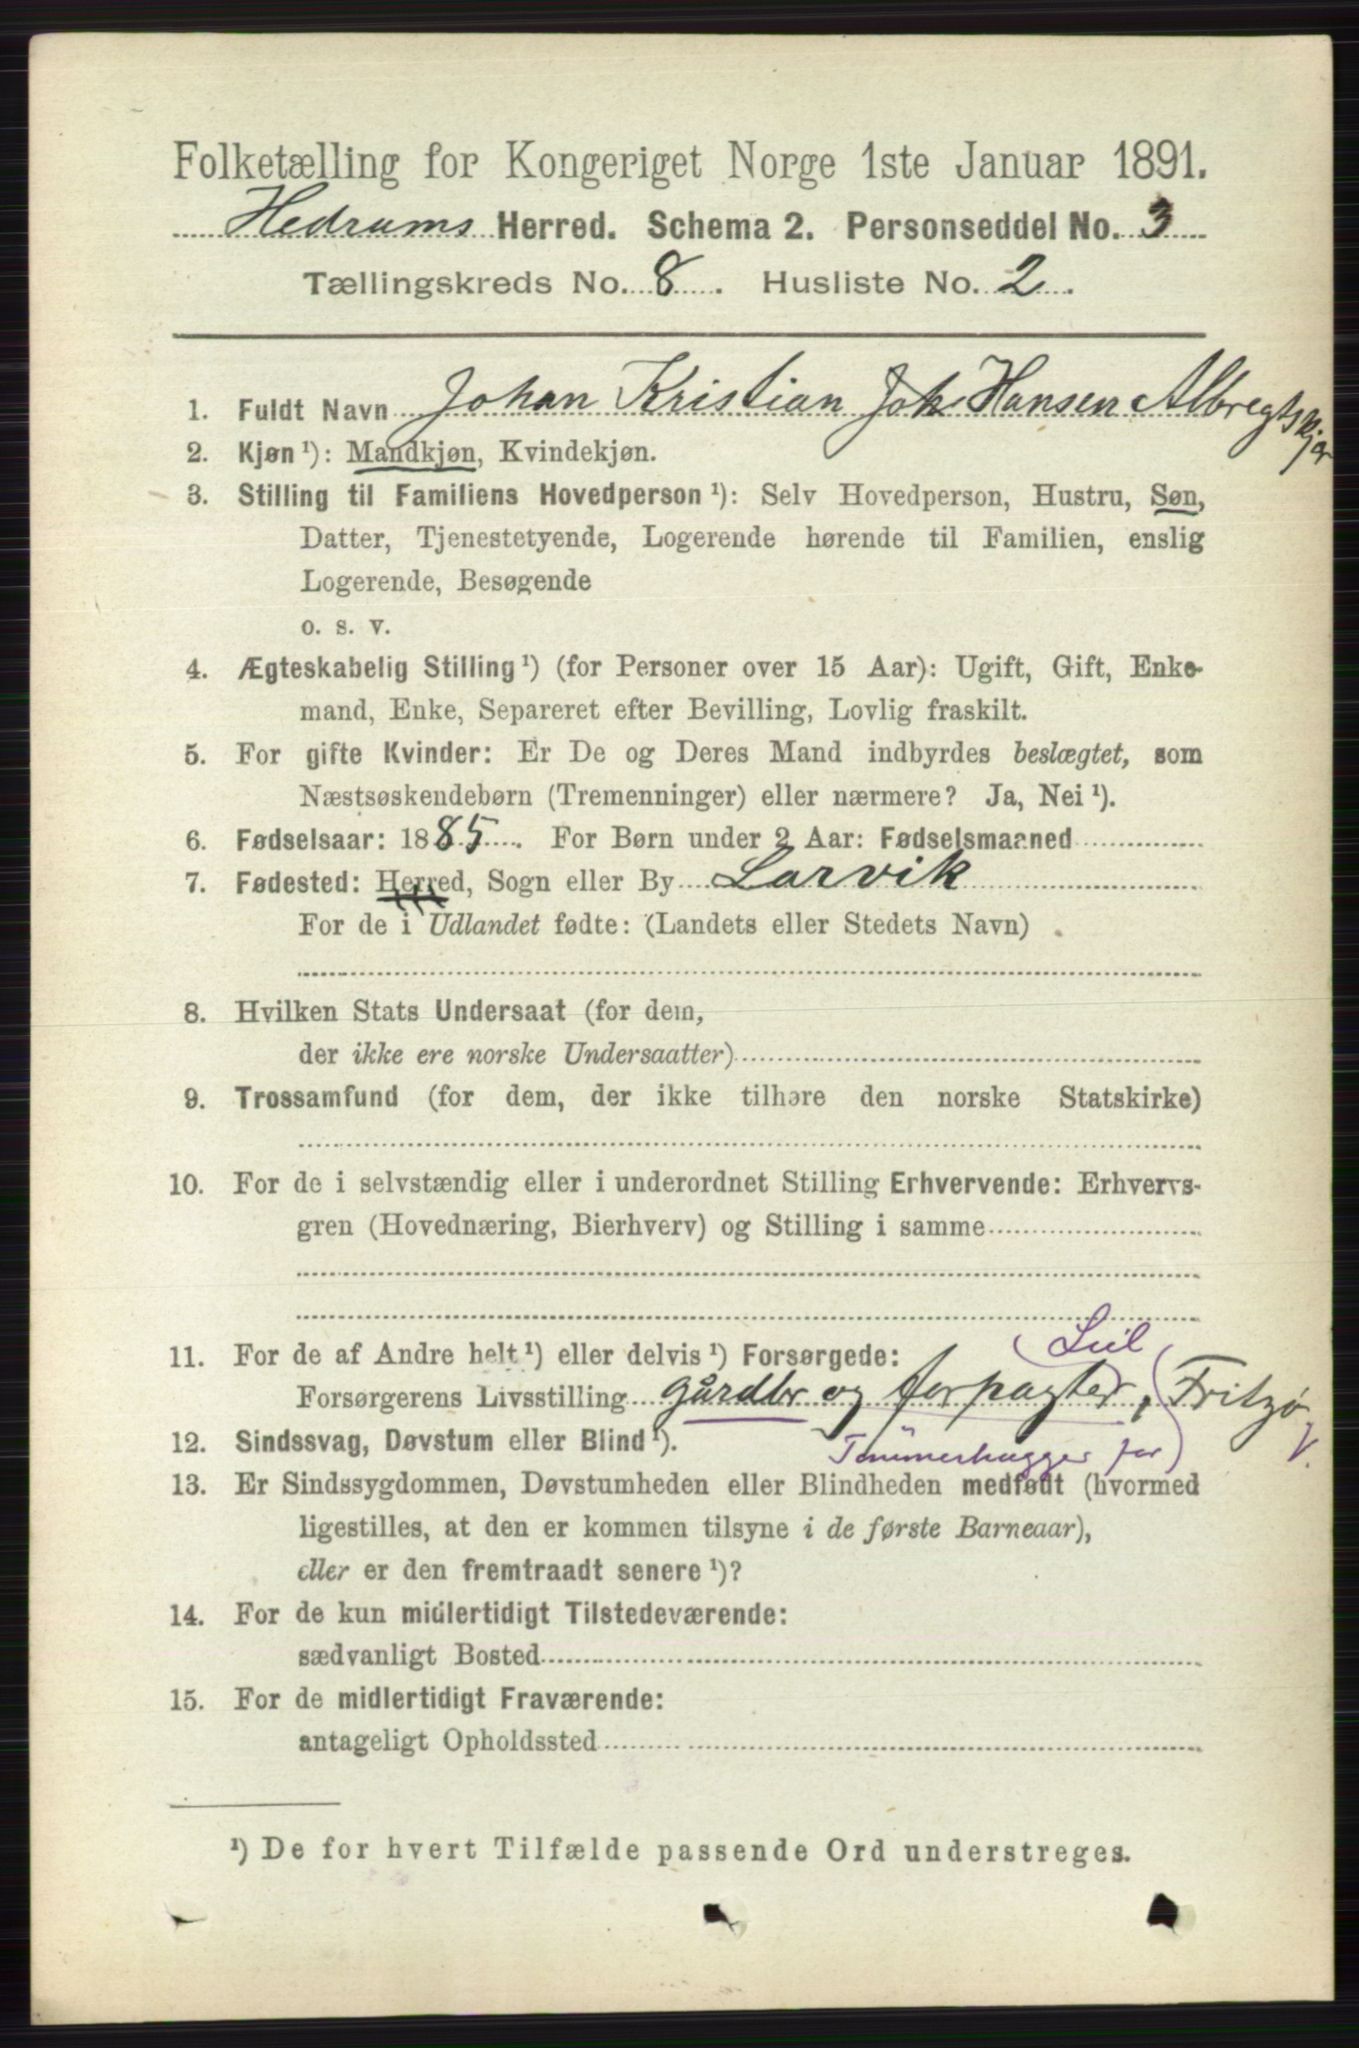 Folketælling for Kongeriget Norge 1ste Januar 1891.
Hedrums Herred. Schema 2. Personseddel No. 3
Tællingskreds No. 8. Husliste No. 2.
1. Fuldt Navn Johan Kristian Joh Hansen Albregtskjær
2. Kjøn ¹): Mandkjøn, Kvindekjøn.
3. Stilling til Familiens Hovedperson ¹): Selv Hovedperson, Hustru, Søn,
Datter, Tjenestetyende, Logerende hørende til Familien, enslig
Logerende, Besøgende
o. s. v.
4. Ægteskabelig Stilling ¹) (for Personer over 15 Aar): Ugift, Gift, Enke-
mand, Enke, Separeret efter Bevilling, Lovlig fraskilt.
5. For gifte Kvinder: Er De og Deres Mand indbyrdes beslægtet, som
Næstsøskendebørn (Tremenninger) eller nærmere? Ja, Nei ¹).
6. Fødselsaar: 1885. For Børn under 2 Aar: Fødselsmaaned
7. Fødested: Herred, Sogn eller By Larvik
For de i Udlandet fødte: (Landets eller Stedets Navn)
8. Hvilken Stats Undersaat (for dem,
der ikke ere norske Undersaatter)
9. Trossamfund (for dem, der ikke tilhøre den norske Statskirke)
10. For de i selvstændig eller i underordnet Stilling Erhvervende: Erhvervs-
gren (Hovednæring, Bierhverv) og Stilling i samme
11. For de af Andre helt ¹) eller delvis ¹) Forsørgede:
Forsørgerens Livsstilling gårdbr og forpagter, Fritzø
12. Sindssvag, Døvstum eller Blind ¹). Tømmerhugger for
13. Er Sindssygdommen, Døvstumheden eller Blindheden medfødt (hvormed
ligestilles, at den er kommen tilsyne i de første Barneaar),
eller er den fremtraadt senere ¹)?
14. For de kun midlertidigt Tilstedeværende:
sædvanligt Bosted
15. For de midlertidigt Fraværende:
antageligt Opholdssted
¹) De for hvert Tilfælde passende Ord understreges.